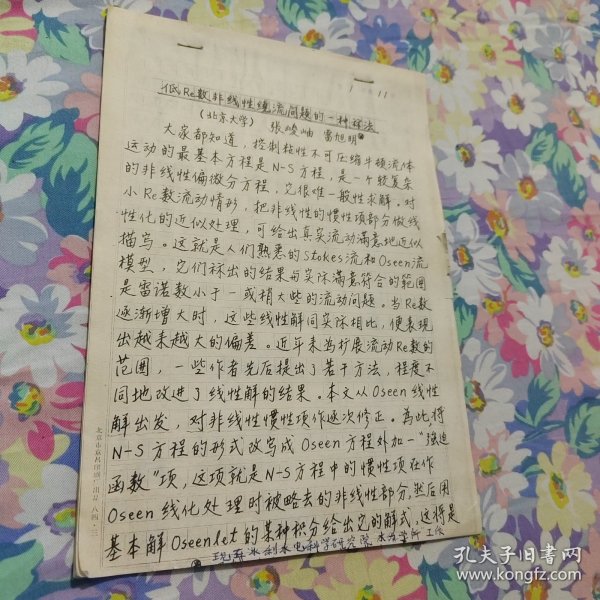 低Re数非线性绕流问题的一种解法
(北京大学) 张峻岫 雷旭明
大家都知道，控制粘性不可压缩牛顿流体
运动的最基本方程是N-S方程，是一个较复杂
的非线性偏微分方程，它很难一般性求解。对
小Re数流动情形，把非线性的惯性项部分做线
性化的近似处理，可给出真实流动满意地近似
描写。这就是人们熟悉的Stokes流和Oseen流
模型，它们标出的结果与实际满意符合的范围
是雷诺数小于一或稍大些的流动问题。当Re数
逐渐增大时，这些线性解同实际相比，便表现
出越来越大的偏差。近年来为扩展流动Re数的
范围，一些作者先后提出了若干方法，程度不
同地改进了线性解的结果。本文从Oseen线性
解出发，对非线性惯性项作逐次修正。为此，将
N-S方程的形式改写成Oseen方程外加一"强迫
函数"项，这项就是N-S方程中的惯性项在作
Oseen线化处理时被略去的非线性部分。然后用
基本解Oseenlet的某种积分给出它的解式，这将是
现在水利水电科学研究院
孔夫子旧书网
www.kongfz.com